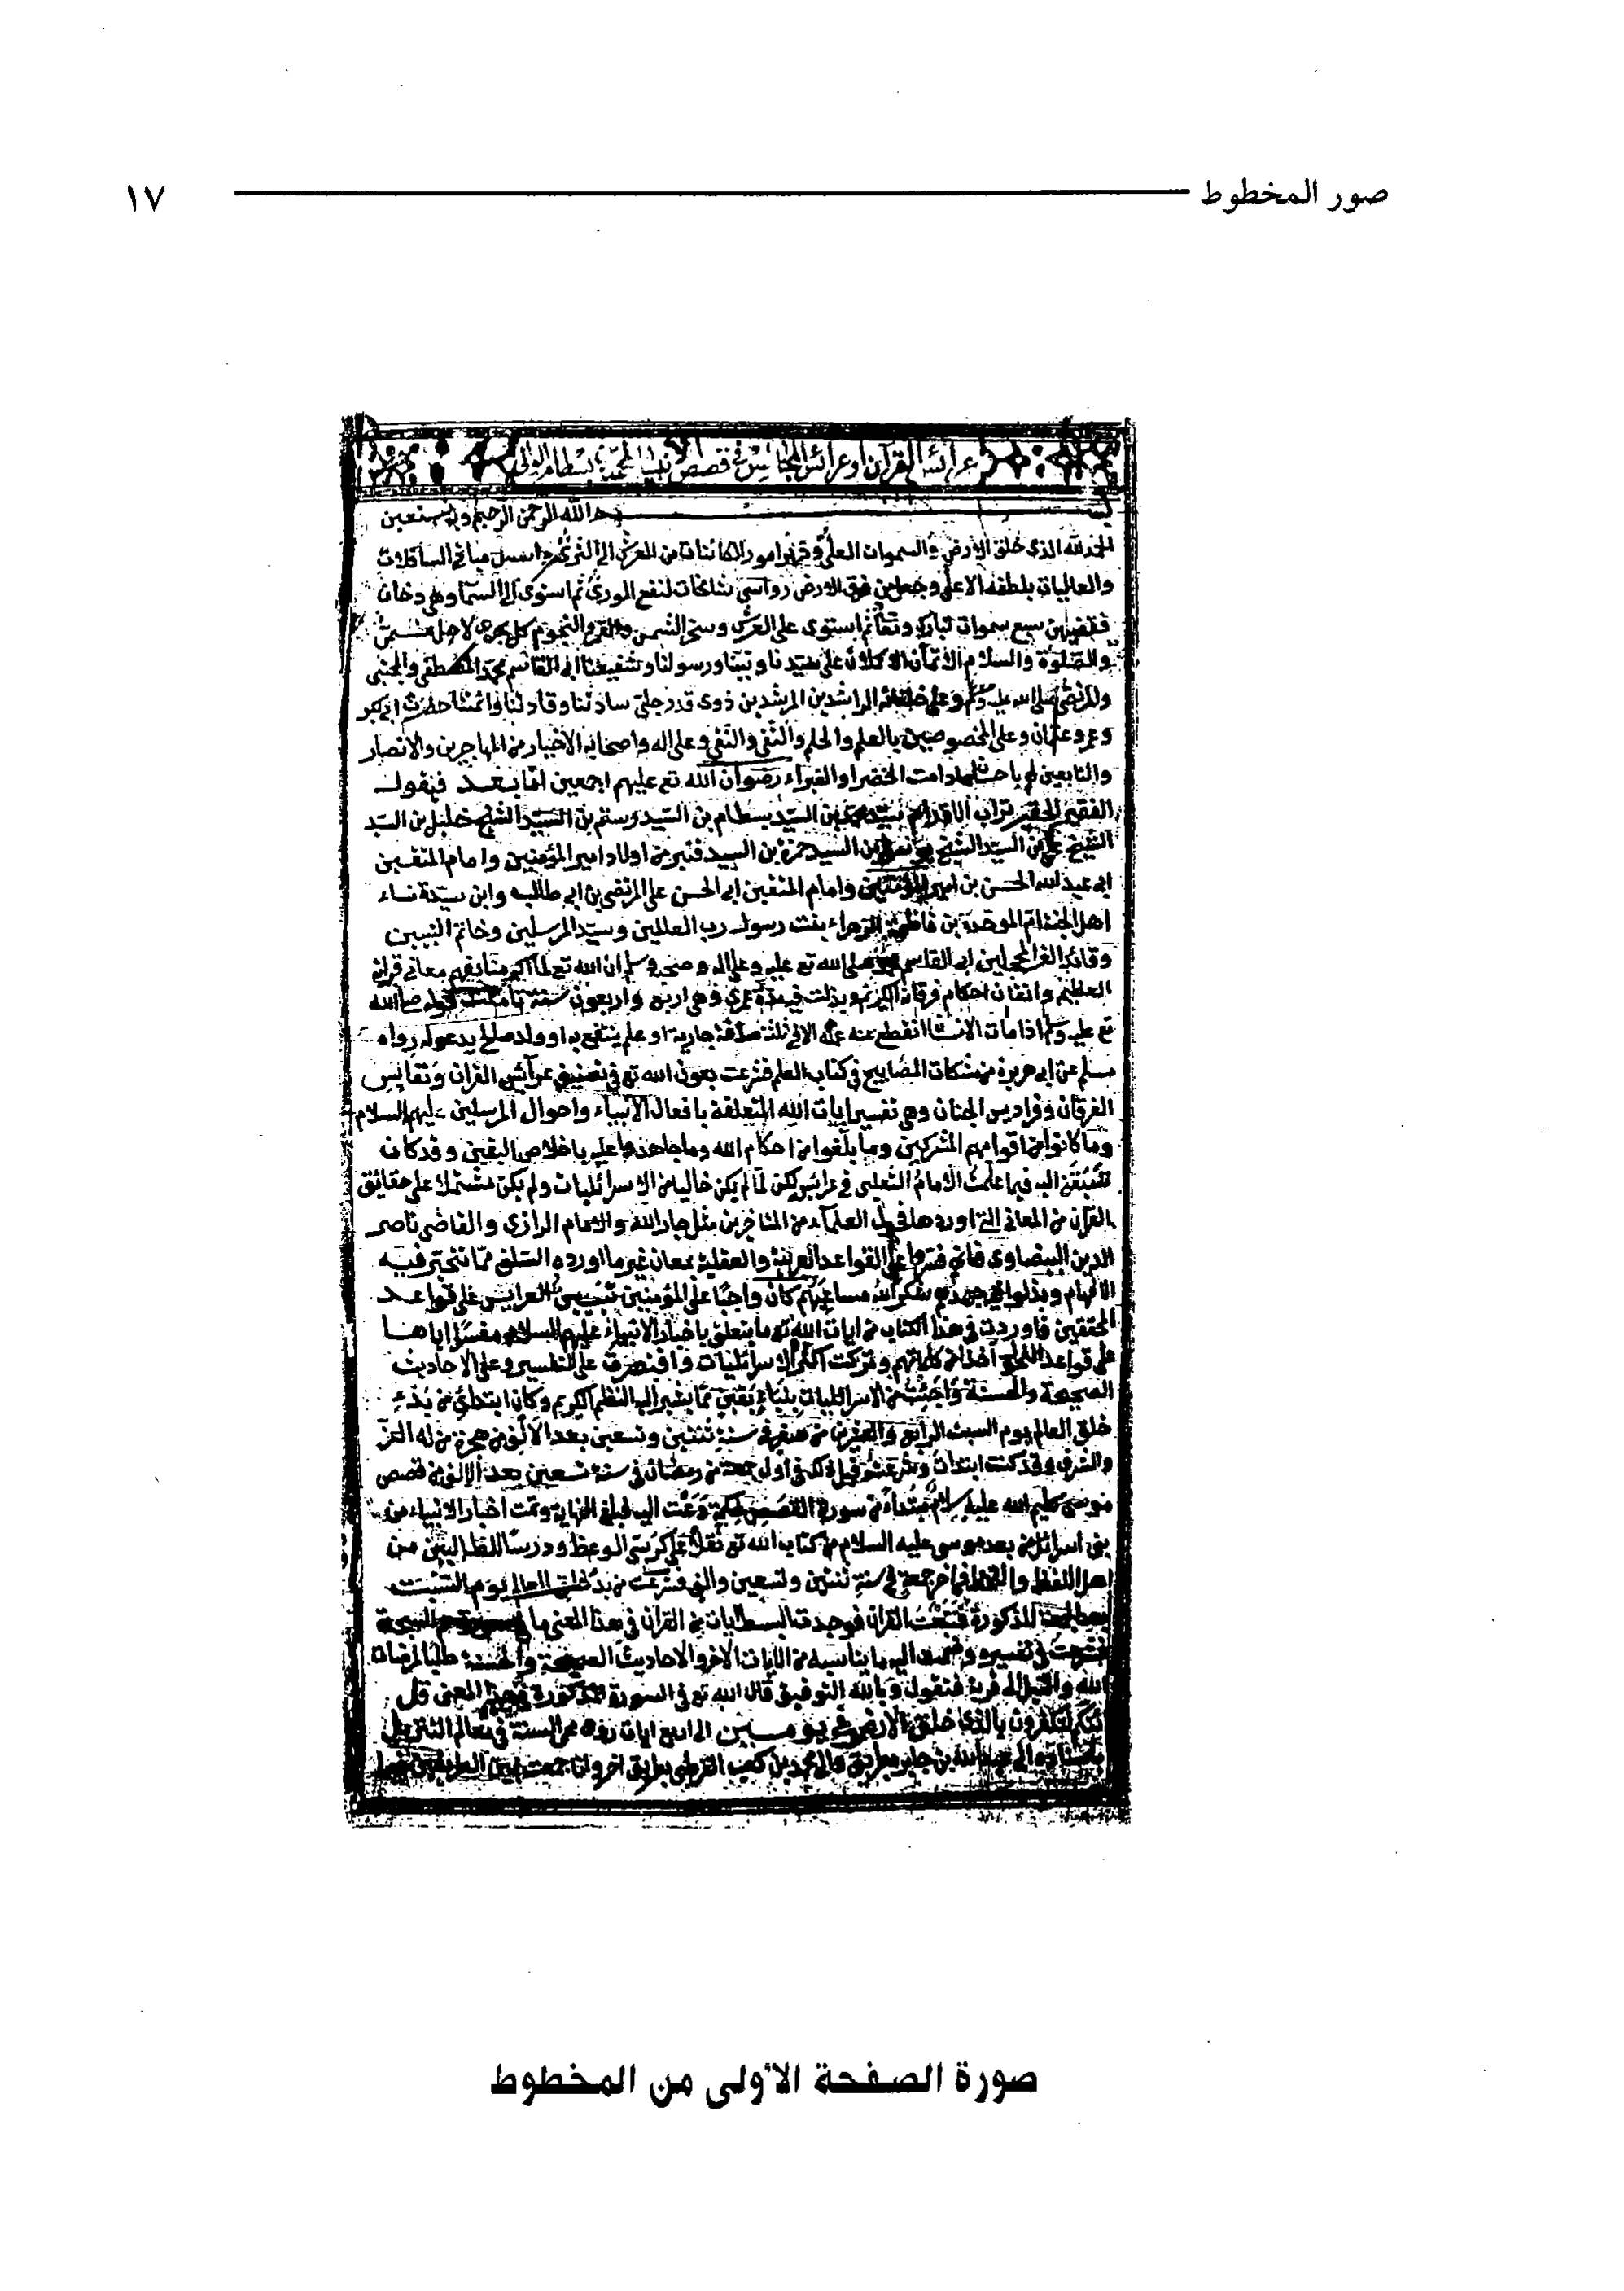 صور المخطوط ١٧
عرائس القرآن وعرائس المجالس في قصص الأنبياء لمحمد بن بسطام الواني
بسم الله الرحمن الرحيم وبه نستعين
الحمد لله الذى خلق الارض والسموات العلى وقدر امور الكائنات من العرش الى الثرى مبانى السافلات
والعاليات بلطفه الاعلى وجعل من فوق الارض رواسى شامخات لنفع الورى ثم استوى الى السماء وهى دخان
فقضيهن سبع سموات تبارك وتعالى ثم استوى على العرش وسخر الشمس والقمر والنجوم كل يجرى لاجل مسمى
والصلوة والسلام الاتمان الاكملان على سيدنا ونبينا ورسولنا وشفيعنا ابى القاسم محمد المصطفى والمجتبى
والمرتضى صلى الله عليه وسلم وعلى خلفائه الراشدين المرشدين ذوى قدر جلى ساداتنا وقادتنا وائمتنا حضرت ابى بكر
وعمر وعثمان وعلى المخصوصين بالعلم والحلم والتقى والنقى وعلى اله واصحابه الاخيار من المهاجرين والانصار
والتابعين لهم باحسان مادامت الخضراء والغبراء رضوان الله تع عليهم اجمعين اما بعد فيقول
الفقير الحقير تراب الاقدام سيد محمد بن السيد بسطام بن السيد رستم بن السيد الشيخ خليل بن السيد
الشيخ بن السيد الشيخ بن السيد حمزة بن السيد قنبر من اولاد امير المؤمنين وامام المتقين
ابى عبد الله الحسن بن امير المؤمنين وامام المتقين ابى الحسن على المرتضى بن ابى طالب وابن سيدة نساء
اهل الجنة فاطمة الزهراء بنت رسول رب العالمين وسيد المرسلين وخاتم النبيين
وقائد الغر المحجلين ابى القاسم محمد صلى الله تع عليه وعلى اله وصحبه وسلم ان الله تع لما اكرمنا بفهم معانى قرانه
العظيم واتقان احكام فرقانه الكريم وبذلت فيه مدة عمرى وهى اربع واربعون سنة تأملت قوله صلى الله
تع عليه وسلم اذا مات الانسان انقطع عنه عمله الا من ثلث صدقة جارية او علم ينتفع به او ولد صالح يدعو له رواه
مسلم عن ابى هريرة من مشكات المصابيح فى كتاب العلم فشرعت بعون الله تع فى تصنيف عرائس القران ونفايس
الفرقان وفراديس الجنان وهى تفسير ايات الله المتعلقة بافعال الانبياء واحوال المرسلين عليهم السلام
وما كانوا من اقوامهم المشركين وما بلغوا من احكام الله وما جاهدوا عليه باخلاص اليقين وقد كان
اليه فيما علمت الامام الثعلبى فى عرائس لكن لما لم يكن خاليا من الاسرائليات ولم يكن مشتملا على حقايق
القرآن من المعانى التى اوردها فحول العلماء من المتاخرين مثل جار الله والامام الرازى والقاضى ناصر
الدين البيضاوى فانهم فسروا على القواعد العربية والعقلية بمعان غير ما اورده السلف مما تتحير فيه
الافهام وبذلوا جهدهم شكر الله مساعيهم كان واجبا على المؤمنين العرايس على قواعد
المحققين فاوردت فى هذا الكتاب من ايات الله تع ما يتعلق باخبار الانبياء عليهم السلام مفسرا اياها
على قواعد اخذا من كلماتهم وتركت اكثر الاسرائليات واقتصرت على التفسير وعلى الاحاديث
الصحيحة والحسنة من الاسرائليات مما يشير اليه النظم الكريم وكان ابتدائى من بدء
خلق العالم يوم السبت الرابع والعشرين من صفر فى سنة ثنتين وتسعين بعد الالف من هجرة من له العز
والشرف وقد كنت ابتدات وشرعت قبل ذلك فى اول جمعة من رمضان فى سنة تسعين بعد الالف من قصص
موسى كليم الله عليه السلام مبتداء من سورة القصص لحكمة دعت اليه فبلغ النهاية وتمت اخبار الانبياء من
بنى اسرائل من بعد موسى عليه السلام من كتاب الله تع نقلا على كرسى الوعظ ودرسا للطالبين من
اهل اللفظ والخط فى اخر جمعة فى سنة ثنتين وتسعين والف فشرعت من بدء خلق العالم يوم السبت
بعد الجمعة المذكورة فتتبعت القران فوجدت ابسط ايات من القران فى هذا المعنى ما فى سورة حم السجدة
فشرعت فى تفسيره وضممت اليه ما يناسبه من الايات الاخر والاحاديث الصحيحة والحسنة طلبا لمرضات
الله فنقول وبالله التوفيق قال الله تع فى السورة المذكورة فى هذا المعنى قل
ائنكم لتكفرون بالذى خلق الارض فى يومين الى اربع ايات روى محى السنة فى معالم التنزيل
محمد بن كعب القرظى بطريق اخر وانا جمعت بين الطريقين
صورة الصفحة الأولى من المخطوط